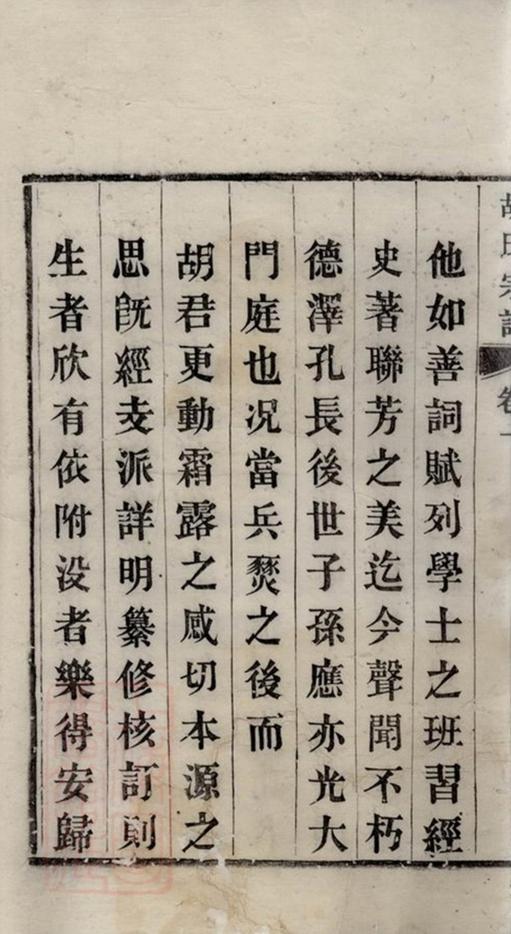 胡氏宗譜
卷一
他如善詞賦列學士之班習經
史著聯芳之美迄今聲聞不朽
德澤孔長後世子孫應亦光大
門庭也况當兵燹之後而
胡君更動霜露之感切本源之
思既經支派詳明纂修核訂則
生者欣有依附没者樂得安歸